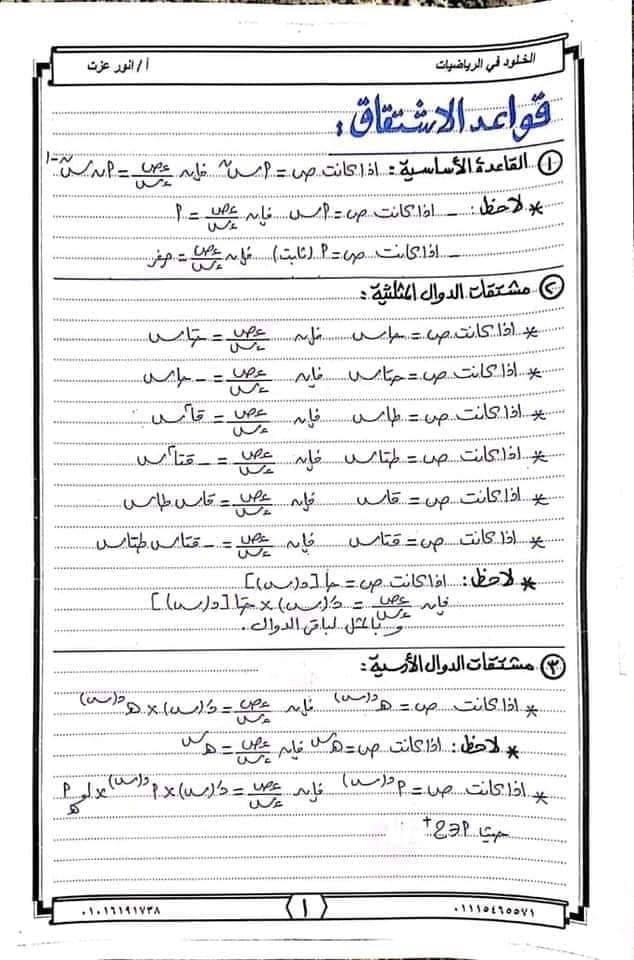 الخلود في الرياضيات أ / انور عزت
قواعد الاشتقاق :
① القاعدة الأساسية : اذا كانت ص = P سⁿ فإنه ءص/ءس = P ن سⁿ⁻¹
* لاحظ : ـ اذا كانت ص = P س فإنه ءص/ءس = P
ـ اذا كانت ص = P (ثابت) فإنه ءص/ءس = صفر
② مشتقات الدوال المثلثية :
* اذا كانت ص = حاس فإنه ءص/ءس = حتاس
* اذا كانت ص = حتاس فإنه ءص/ءس = ـ حاس
* اذا كانت ص = طاس فإنه ءص/ءس = قا²س
* اذا كانت ص = طتاس فإنه ءص/ءس = ـ قتا²س
* اذا كانت ص = قاس فإنه ءص/ءس = قاس طاس
* اذا كانت ص = قتاس فإنه ءص/ءس = ـ قتاس طتاس
* لاحظ : اذا كانت ص = حا [د(س)]
فإنه ءص/ءس = د́(س) × حتا [د(س)]
وبالمثل لباقي الدوال .
③ مشتقات الدوال الأسية :
* اذا كانت ص = هـ^د(س) فإنه ءص/ءس = د́(س) × هـ^د(س)
* لاحظ : اذا كانت ص = هـ^س فإنه ءص/ءس = هـ^س
* اذا كانت ص = P^د(س) فإنه ءص/ءس = د́(س) × P^د(س) × لو_هـ P
حيث P ∈ ح⁺
٠١١١٥٤٦٥٥٧١ ١ ٠١٠١٦١٩١٧٣٨